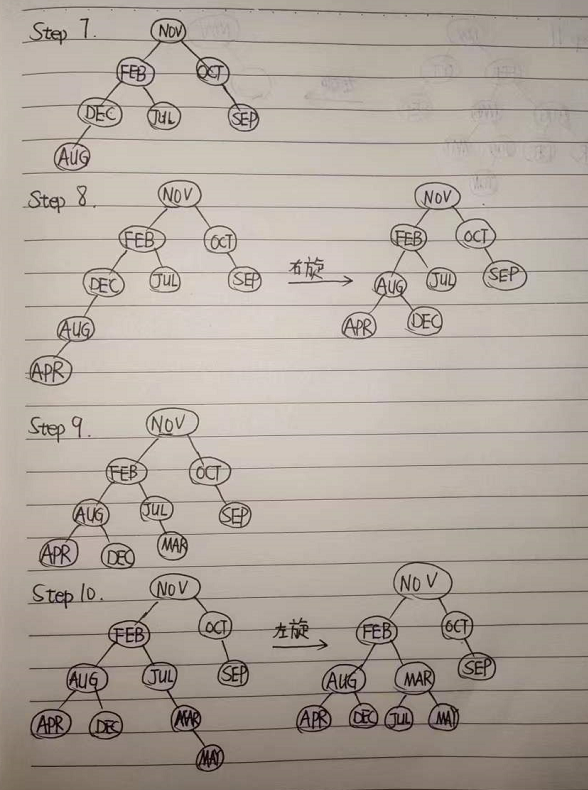 Step 7.
NOV
FEB OCT
DEC JUL SEP
AUG
Step 8.
NOV
FEB OCT
DEC JUL SEP
AUG
APR
右旋
NOV
FEB OCT
AUG JUL SEP
APR DEC
Step 9.
NOV
FEB OCT
AUG JUL SEP
APR DEC MAR
Step 10.
NOV
FEB OCT
AUG JUL SEP
APR DEC MAR
MAY
左旋
NOV
FEB OCT
AUG MAR SEP
APR DEC JUL MAY